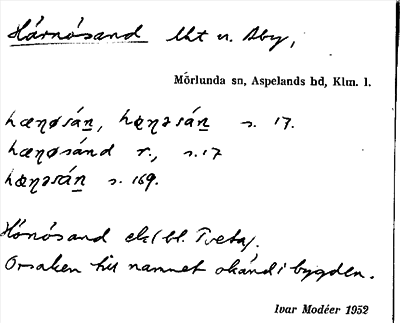 Härnösand lht u. Åby,
Mörlunda sn, Aspelands hd, Klm. l.
hæṇøsán̲, hæṇəsán̲ s. 17.
hæṇøsánd r., s. 17
hæṇəsán̲ s. 169.
Hönösand ek. bl. Tveta.
Orsaken till namnet okänd i bygden.
Ivar Modéer 1952